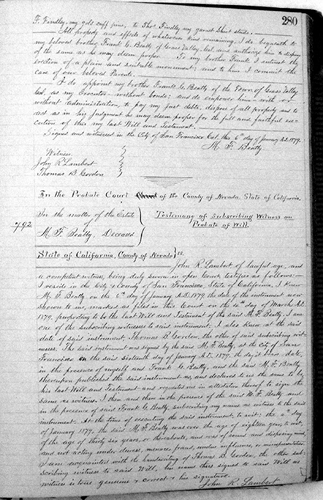 280
F. Findley, my gold cuff pins, to Thos. Findley my garnet Shirt studs.
All property and effects of whatsoever sum remaining, I do bequeath to
my beloved brother Frank G. Beatty of Grass Valley, Cal. and authorize him to dispose
of the same as he may deem proper. To my brother Frank I intrust the
erection of a plain and suitable monument, and to him I commit the
care of our beloved Parents.
I do appoint my brother Frank G. Beatty of the Town of Grass Valley
Cal. as my Executor without bonds; and do empower him with or
without administration, to pay my just debts, dispose of all property and to
act as in his judgment he may deem proper for the full and faithful exe-
cution of this my last Will and Testament.
Signed and witnessed in the City of San Francisco, Cal. the 6th day of January A.D. 1879.
M. F. Beatty
Witness
John R. Lambert
Thomas B. Gordon
In the Probate Court of the County of Nevada State of California
792
In the matter of the Estate
of
M. F. Beatty, Deceased
Testimony of Subscribing Witness on
Probate of Will.
State of California, County of Nevada ss.
John R. Lambert of lawful age, and
a competent witness, being duly sworn in open Court, testifies as follows:
I reside in the City & County of San Francisco, State of California, I knew
M. F. Beatty on the 6th day of January A.D. 1879 the date of the instrument now
shown to me, marked as filed in this Court on the day of March A.D.
1879, purporting to be the last Will and Testament of the said M. F. Beatty, I am
one of the subscribing witnesses to said instrument. I also knew at the said
date of said instrument, Thomas B. Gordon, the other of said subscribing wit-
nesses. The said instrument was signed by the said M. F. Beatty, at the City of San
Francisco on the said sixth day of January A.D. 1879, the day it bears date,
in the presence of myself and Frank G. Beatty, and the said M. F. Beatty
thereupon published the said instrument as, and declared to me the same to be
his last Will and Testament and requested me in attestation thereof to sign the
same as witness. I then and there in the presence of the said M. F. Beatty and
in the presence of said Frank G. Beatty, subscribed my name as witness to the said
instrument. At the time of executing the said instrument, to wit: the 6th day
of January 1879, the said M. F. Beatty was over the age of eighteen years to wit,
of the age of thirty six years, or thereabouts, and was of sound and disposing mind
and not acting under duress, menace, fraud, undue influence, or misrepresentation
I am acquainted with the handwriting of Thomas B. Gordon, the other sub-
scribing witness to said Will, his name thus signed to said Will as
witness is his genuine & correct & his signature
John R. Lambert